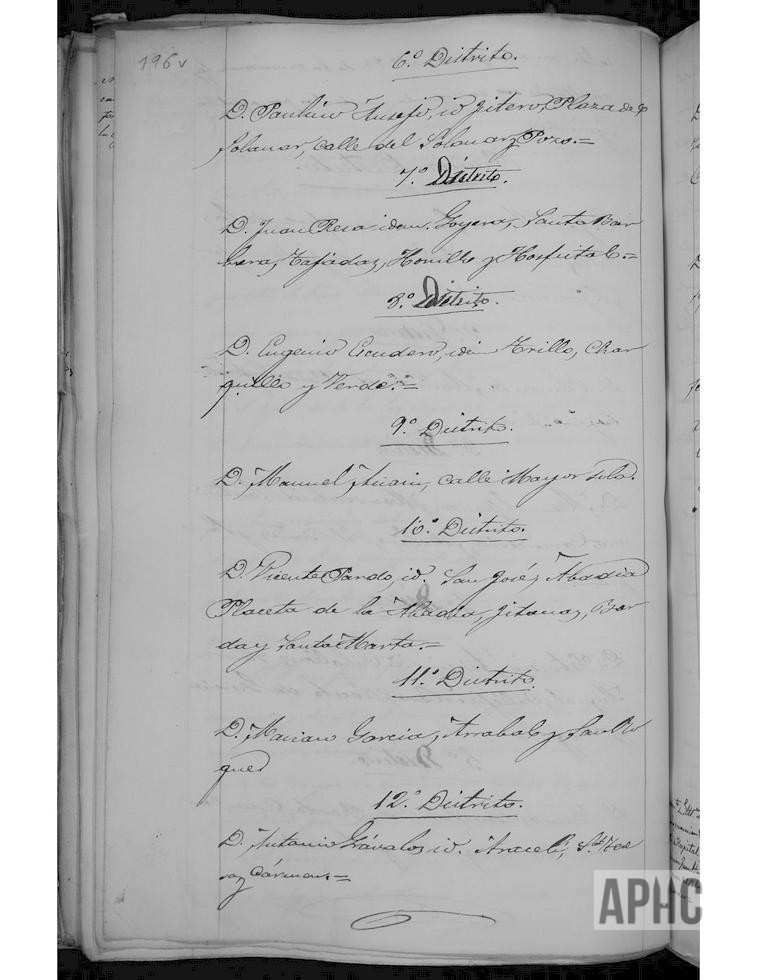 196v
6.º Distrito.
D. Paulino Ausejo, id. Jitero, Plaza de
Solanar, calle del Solanar y Pozo.=
7.º Distrito.
D. Juan Resa idem. Goyena, Santa Bar
bara, Tajadas, Hornillo y Hospital.=
8.º Distrito.
D. Eugenio Escudero, id. Trillo, Char
quillo y Verde.=
9.º Distrito.
D. Manuel, calle Mayor sola.
10.º Distrito.
D. Vicente Pardo, id. San José, Abadia
Placeta de la Abadia, Jitanas, Bar
da y Santa Marta.=
11.º Distrito.
D. Mariano Garcia, Arrabal y San Ro
que
12.º Distrito.
D. Antonio Grávalos, id. Araceli, Sta. Tere
sa y Cármen.=
APHC